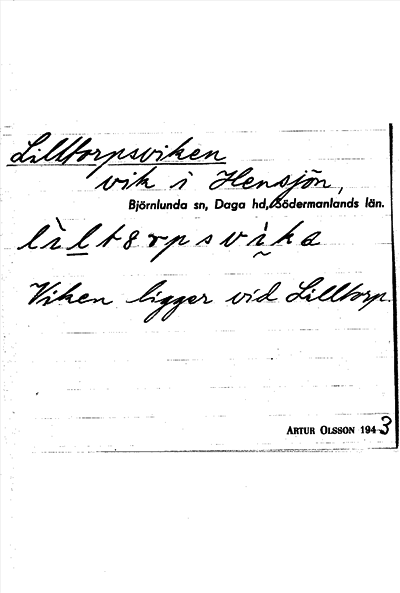 Lilltorpsviken
vik i Hensjön,
Björnlunda sn, Daga hd, Södermanlands län.
lìlt8rpsvìka
Viken ligger vid Lilltorp.
ARTUR OLSSON 1943